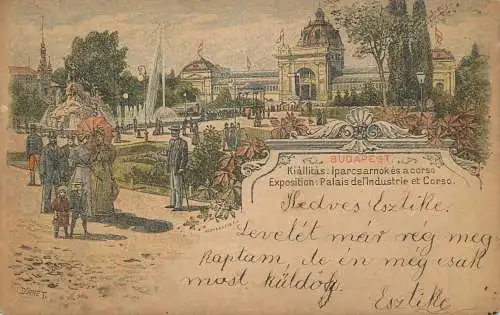 BUDAPEST.
Kiállitás: Iparcsarnok és a corso
Exposition: Palais del'Industrie et Corso.
Kedves Esztike.
Levelét már rég meg-
kaptam, de én még csak
most küldök
Esztike